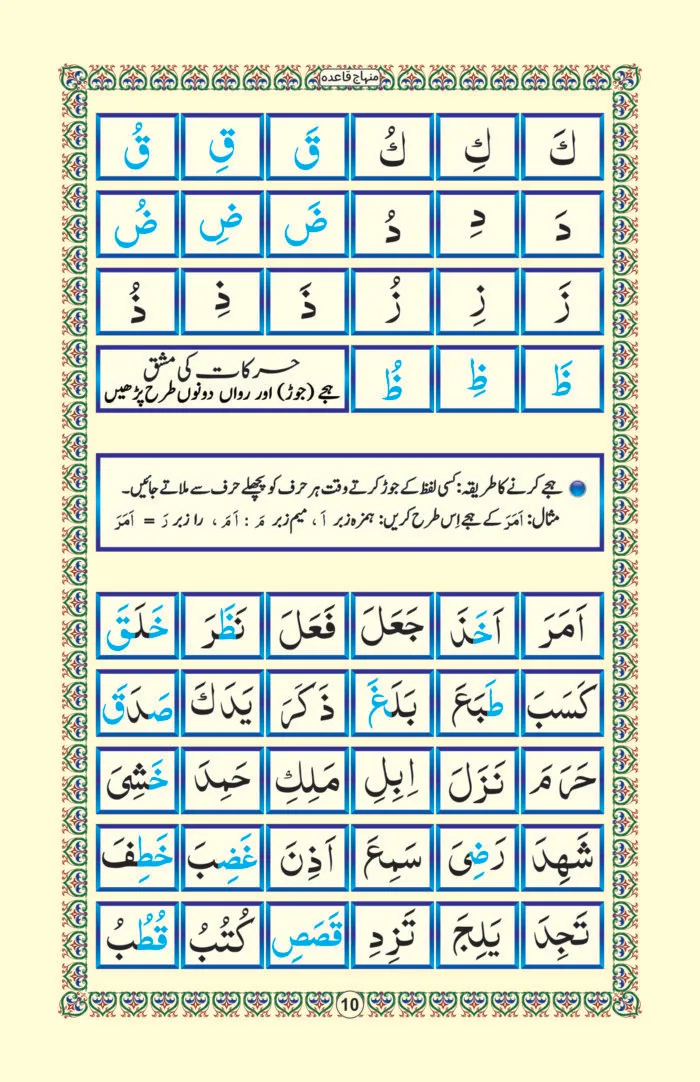 منہاج قاعدہ
كَ كِ كُ قَ قِ قُ
دَ دِ دُ ضَ ضِ ضُ
زَ زِ زُ ذَ ذِ ذُ
ظَ ظِ ظُ
حرکات کی مشق
ہجے (جوڑ) اور رواں دونوں طرح پڑھیں
ہجے کرنے کا طریقہ: کسی لفظ کے جوڑ کرتے وقت ہر حرف کو پچھلے حرف سے ملاتے جائیں۔
مثال: اَمَرَ کے ہجے اِس طرح کریں: ہمزہ زبر اَ، میم زبر مَ : اَمَ، را زبر رَ = اَمَرَ
اَمَرَ اَخَذَ جَعَلَ فَعَلَ نَظَرَ خَلَقَ
كَسَبَ طَبَعَ بَلَغَ ذَكَرَ يَدَكَ صَدَقَ
حَرَمَ نَزَلَ اِبِلِ مَلِكِ حَمِدَ خَشِىَ
شَهِدَ رَضِىَ سَمِعَ اَذِنَ غَضِبَ خَطِفَ
تَجِدَ يَلِجَ تَزِدِ قَصَصِ كُتُبُ قُطُبُ
10